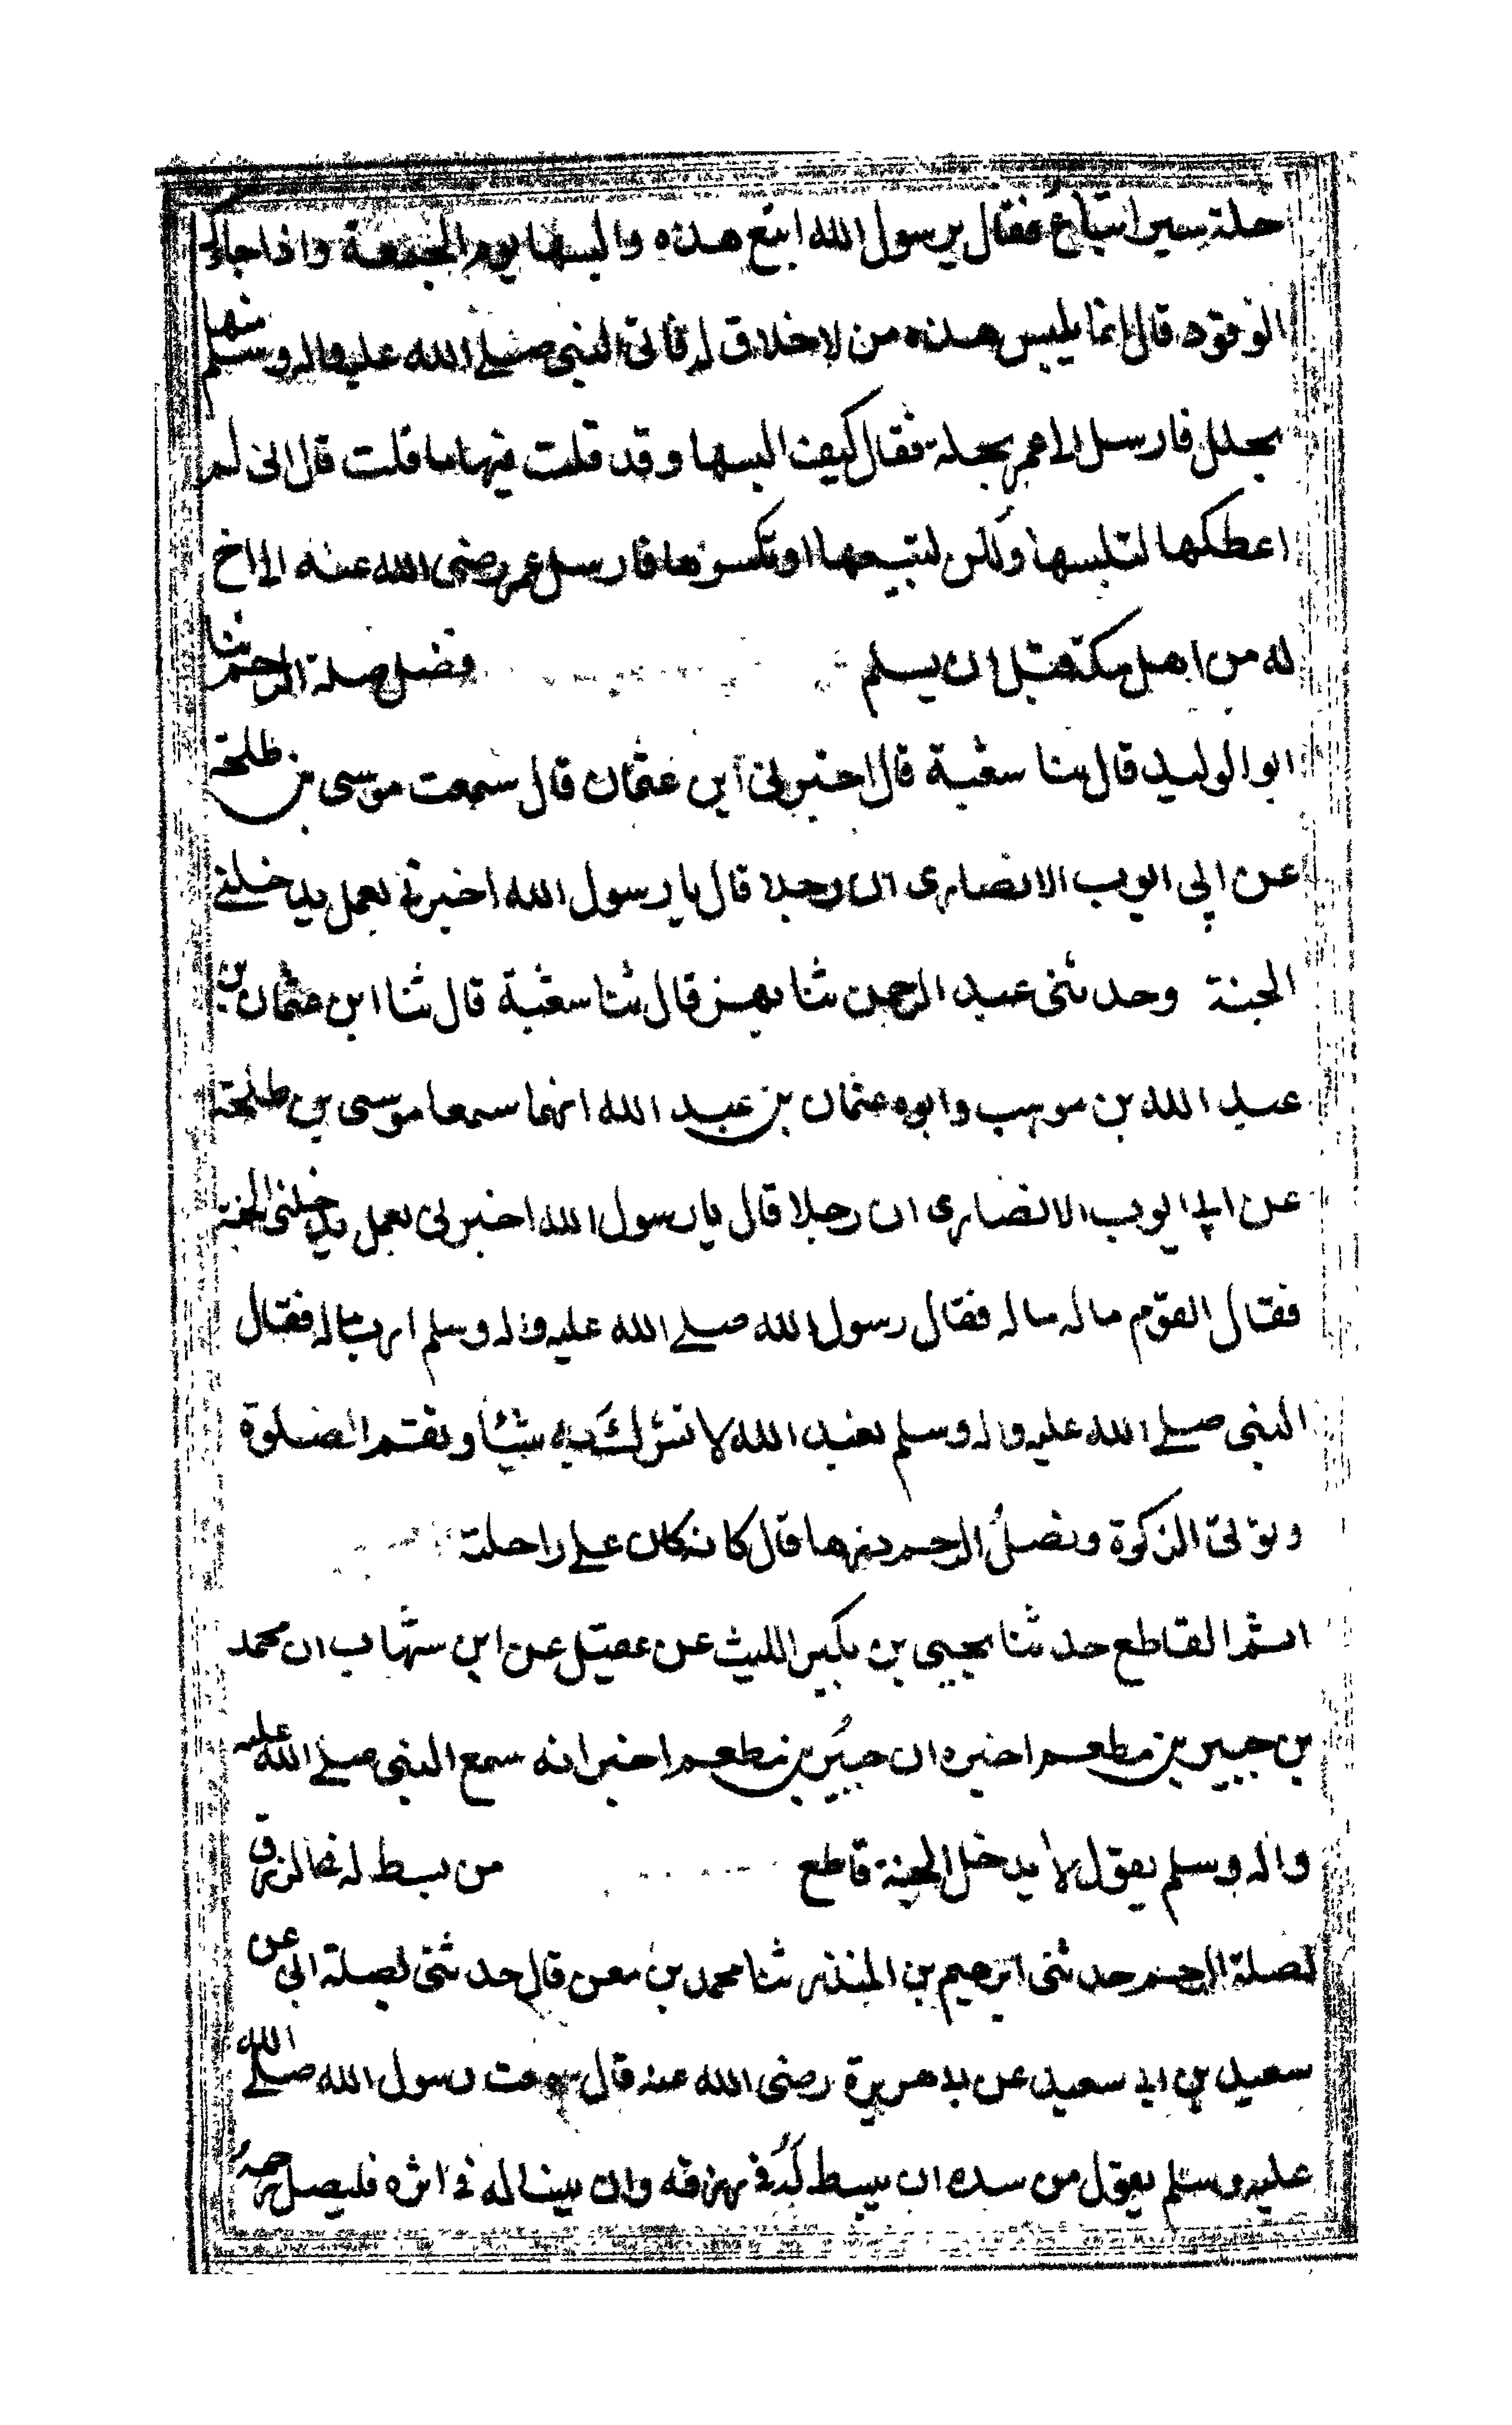 حلة سيراء تباع فقال يرسول الله ابتع هذه والبسها يوم الجمعة واذا جاءك
الوفود قال انما يلبس هذه من لا خلاق له فاتى النبي صلى الله عليه واله وسلم منها
بحلل فارسل الا عمر بحلة فقال كيف البسها وقد قلت فيها ما قلت قال اني لم
اعطكها لتلبسها ولكن لتبيعها او تكسوها فارسل عمر رضى الله عنه الى اخ
له من اهل مكة قبل ان يسلم فضل صلة الرحم ثنا
ابو الوليد قال ثنا شعبة قال اخبرني ابن عثمان قال سمعت موسى بن طلحة
عن ابي ايوب الانصارى ان رجلا قال يا رسول الله اخبرني بعمل يدخلنى
الجنة وحدثنى عبد الرحمن ثنا بهز قال ثنا شعبة قال ثنا ابن عثمان بن
عبد الله بن موهب وابوه عثمان بن عبد الله انهما سمعا موسى بن طلحة
عن ابي ايوب الانصارى ان رجلا قال يا رسول الله اخبرني بعمل يدخلنى الجنة
فقال القوم ماله ماله فقال رسول الله صلے الله عليه واله وسلم ارب ماله فقال
النبى صلے الله عليه واله وسلم تعبد الله لا تشرك به شيئا وتقم الصلوة
وتؤتى الزكوة وتصل الرحم ذرها قال كانه كان على راحلته
اثم القاطع حدثنا يحيى بن بكير الليث عن عقيل عن ابن شهاب ان محمد
بن جبير بن مطعم اخبره ان جبير بن مطعم اخبر انه سمع النبى صلے الله عليه
واله وسلم يقول لا يدخل الجنة قاطع من بسط له فى الرزق
لصلة الرحم حدثنى ابرهيم بن المنذر ثنا محمد بن معن قال حدثنى لصلة ابى عن
سعيد بن ابي سعيد عن ابي هريرة رضى الله عنه قال سمعت رسول الله صلے الله
عليه وسلم يقول من سره ان يبسط له فى رزقه وان ينسا له فى اثره فليصل رحمه